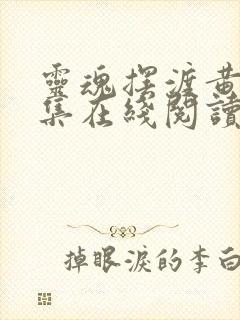 靈魂摆渡黄
集在綫閱讀
掉眼淚的李白